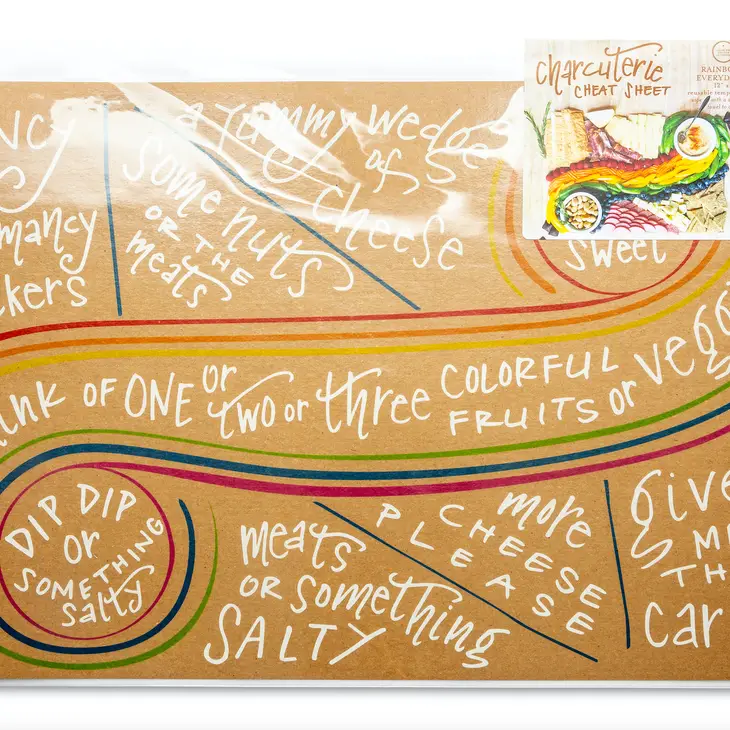 charcuterie
CHEAT SHEET
RAINBO
EVERYD
12"
reusable
a yummy wedge
of
cheese
some nuts
OR THE
meats
ncy
mancy
kers
sweet
OF ONE or two or three COLORFUL FRUITS or vegg
DIP DIP
or
SOMETHING
salty
meats
OR something
SALTY
more
CHEESE
PLEASE
give
M
TH
car